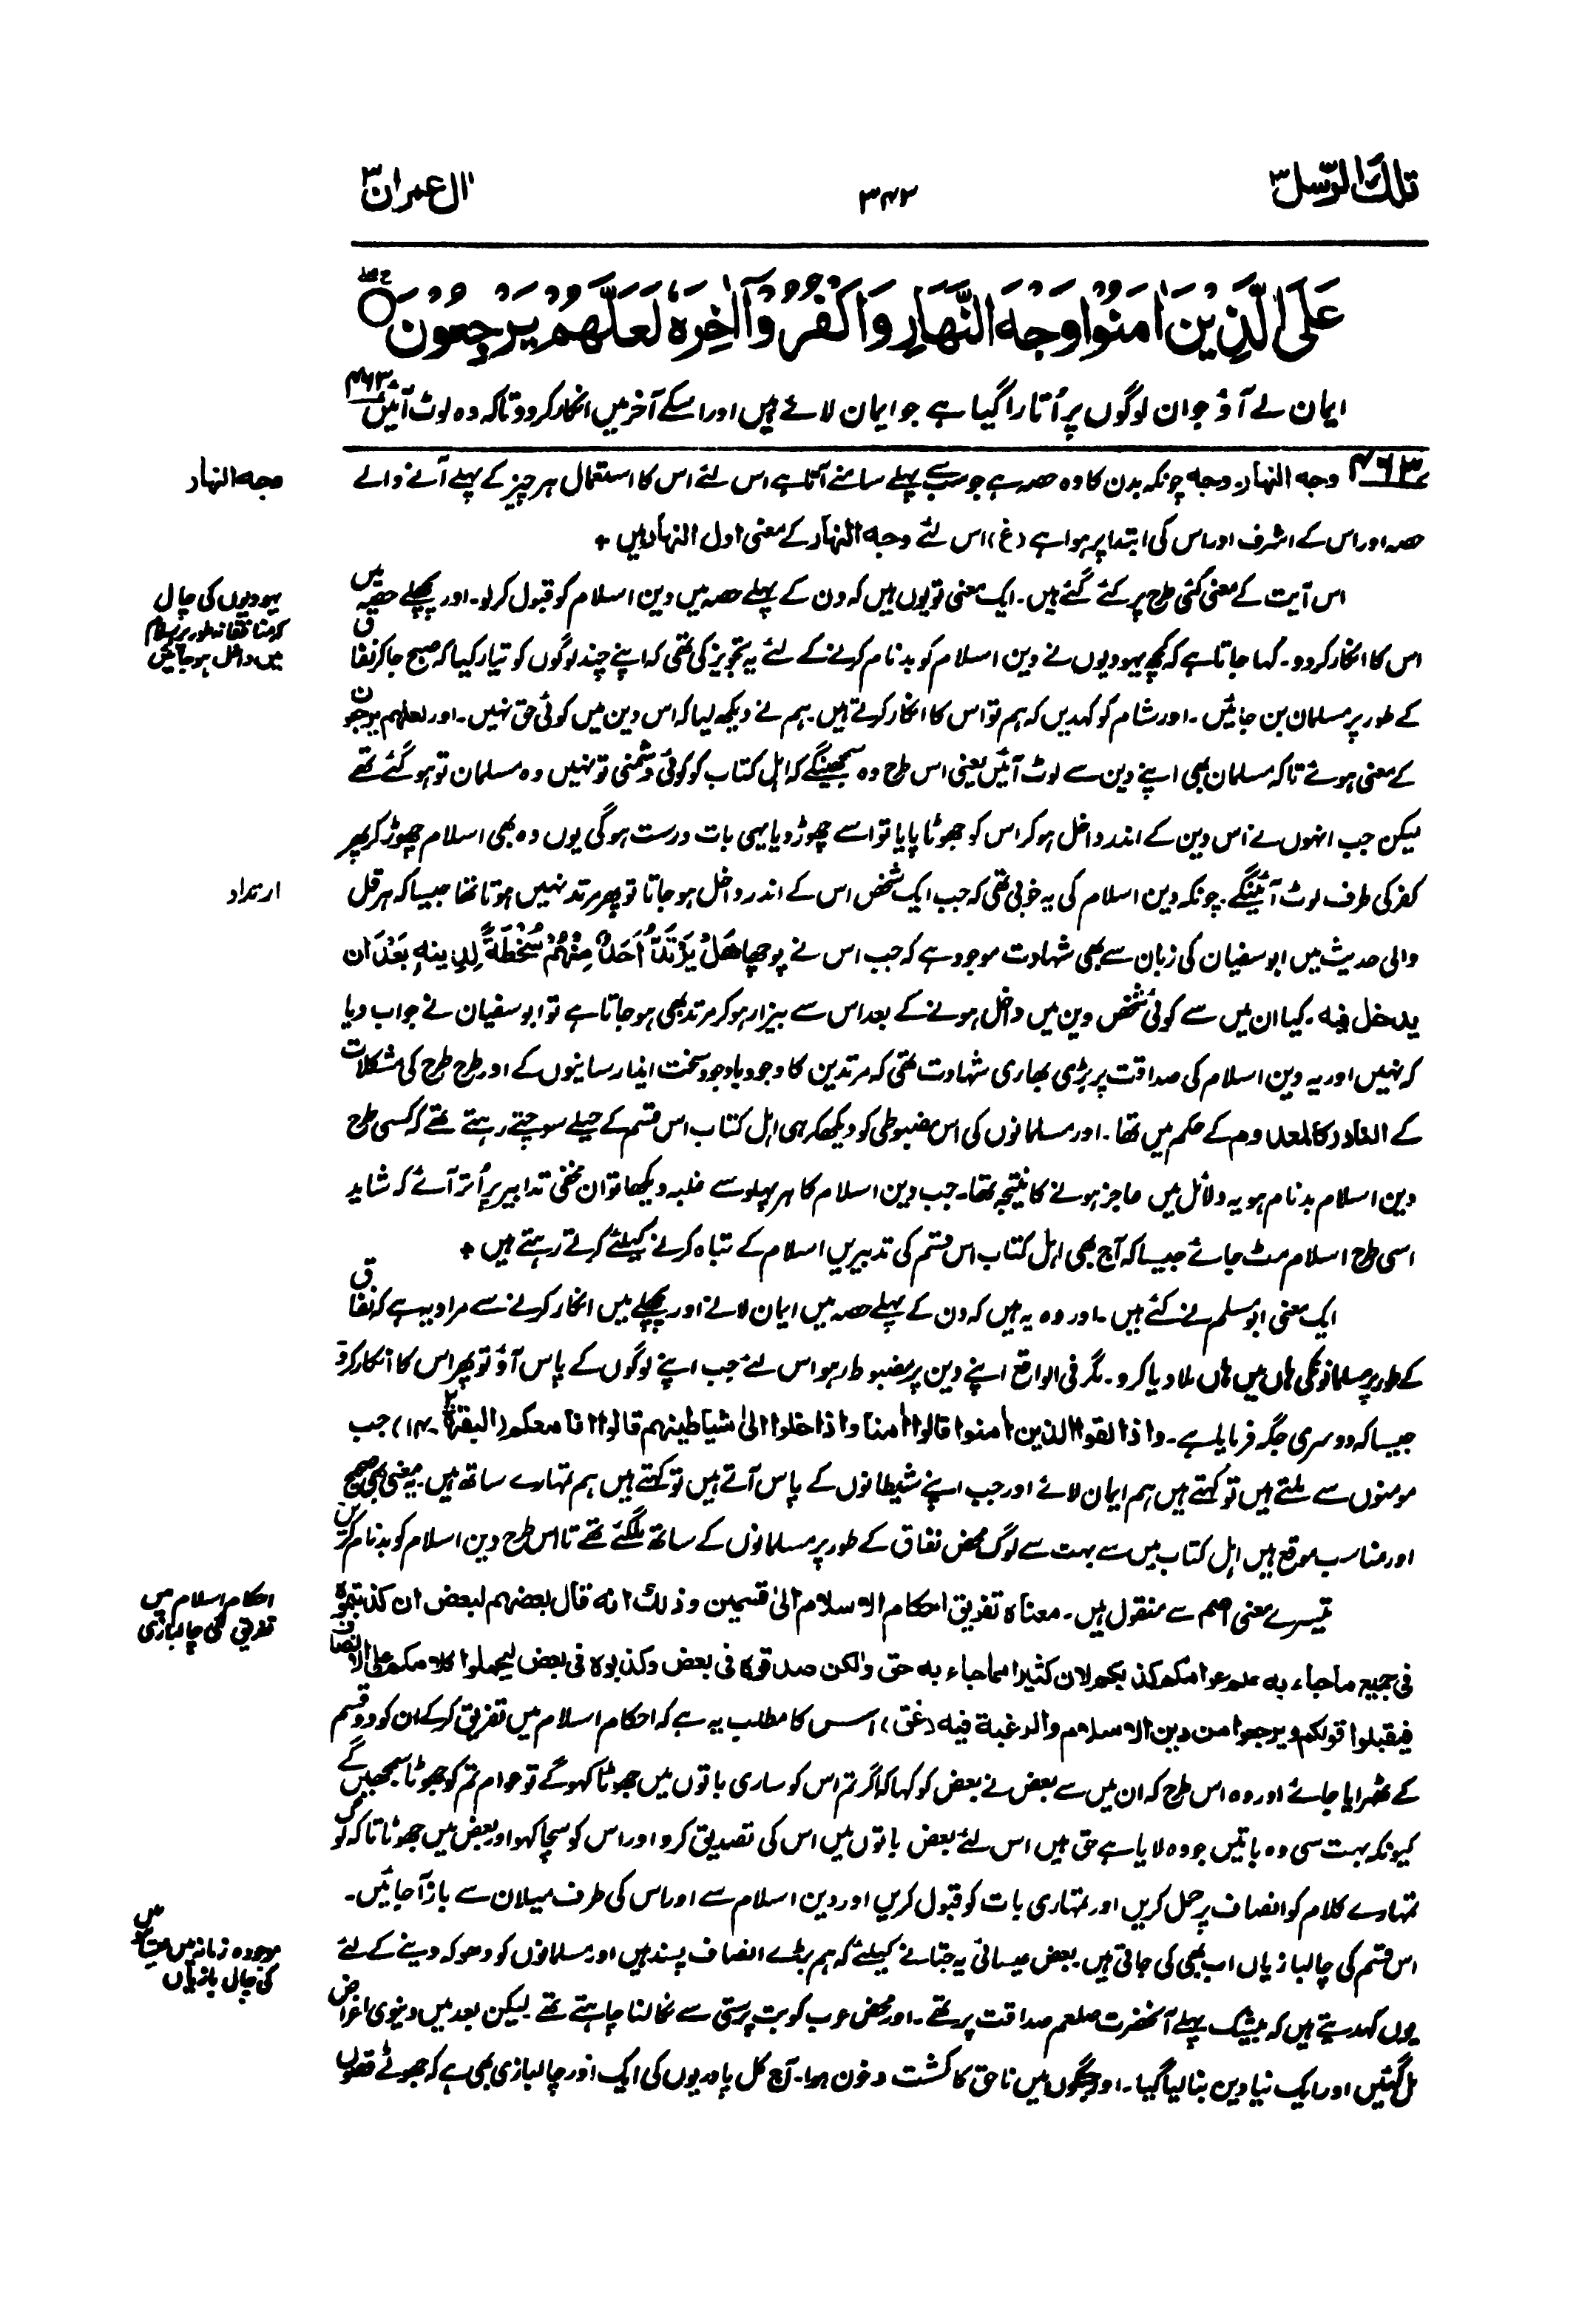 تلك الرّسل ۳
۳۴۲
اٰل عمران ۳
عَلَى الَّذِيْنَ اٰمَنُوْا وَجْهَ النَّهَارِ وَاكْفُرُوْٓا اٰخِرَهٗ لَعَلَّهُمْ يَرْجِعُوْنَ ○
ایمان لے آؤ جو ان لوگوں پر اُتارا گیا ہے جو ایمان لائے ہیں اور اسکے آخر میں انکار کر دو تاکہ وہ لوٹ آئیں ۴۶۳
۴۶۳ وجه النهار۔ وجه چونکہ بدن کا وہ حصہ ہے جو سب سے پہلے سامنے آتا ہے اس لئے اس کا استعمال ہر چیز کے پہلے آنے والے
وجه النهار
حصہ اور اس کے اشرف اور اس کی ابتدا پر ہوا ہے (غ) اس لئے وجه النهار کے معنی اول النهار ہیں +
اس آیت کے معنی کئی طرح پر کئے گئے ہیں۔ ایک معنی تو یوں ہیں کہ دن کے پہلے حصہ میں دین اسلام کو قبول کر لو۔ اور پچھلے حصہ میں
یہودیوں کی چال کہ منافقانہ طور پر اسلام میں داخل ہو جائیں
اس کا انکار کر دو۔ کہا جاتا ہے کہ کچھ یہودیوں نے دین اسلام کو بدنام کرنے کے لئے یہ تجویز کی تھی کہ اپنے چند لوگوں کو تیار کیا کہ صبح جا کر نفاق
کے طور پر مسلمان بن جائیں۔ اور شام کو کہدیں کہ ہم تو اس کا انکار کرتے ہیں۔ ہم نے دیکھ لیا کہ اس دین میں کوئی حق نہیں۔ اور لعلهم يرجعون
کے معنی ہوئے تاکہ مسلمان بھی اپنے دین سے لوٹ آئیں یعنی اس طرح وہ سمجھینگے کہ اہل کتاب کو کوئی دشمنی تو نہیں وہ مسلمان تو ہو گئے تھے
لیکن جب انہوں نے اس دین کے اندر داخل ہو کر اس کو جھوٹا پایا تو اسے چھوڑ دیا یہی بات درست ہو گی یوں وہ بھی اسلام چھوڑ کر پھر
کفر کی طرف لوٹ آئینگے۔ چونکہ دین اسلام کی یہ خوبی تھی کہ جب ایک شخص اس کے اندر داخل ہو جاتا تو پھر مرتد نہیں ہوتا تھا جیسا کہ ہرقل
ارتداد
والی حدیث میں ابو سفیان کی زبان سے بھی شہادت موجود ہے کہ جب اس نے پوچھا هَلْ يَرْتَدُّ أَحَدٌ مِنْهُمْ سُخْطَةً لِدِينِهِ بَعْدَ ان
يدخل فيه۔ کیا ان میں سے کوئی شخص دین میں داخل ہونے کے بعد اس سے بیزار ہو کر مرتد بھی ہو جاتا ہے تو ابو سفیان نے جواب دیا
کہ نہیں اور یہ دین اسلام کی صداقت پر بڑی بھاری شہادت تھی کہ مرتدین کا وجود باوجود سخت ایذا رسانیوں کے اور طرح طرح کی مشکلات
کے النادر كالمعدوم کے حکم میں تھا۔ اور مسلمانوں کی اس مضبوطی کو دیکھ کر ہی اہل کتاب اس قسم کے حیلے سوچتے رہتے تھے کہ کسی طرح
دین اسلام بدنام ہو یہ دلائل میں عاجز ہونے کا نتیجہ تھا۔ جب دین اسلام کا ہر پہلو سے غلبہ دیکھا تو ان مخفی تدابیر پر اُتر آئے کہ شاید
اسی طرح اسلام مٹ جائے جیسا کہ آج بھی اہل کتاب اس قسم کی تدبیریں اسلام کے تباہ کرنے کیلئے کرتے رہتے ہیں +
ایک معنی ابو مسلم نے کئے ہیں۔ اور وہ یہ ہیں کہ دن کے پہلے حصہ میں ایمان لانے اور پچھلے میں انکار کرنے سے مراد یہ ہے کہ نفاق
کے طور پر مسلمانوں کی ہاں میں ہاں ملا دیا کرو۔ مگر فی الواقع اپنے دین پر مضبوط رہو اس لئے جب اپنے لوگوں کے پاس آؤ تو پھر اس کا انکار کر دو
جیسا کہ دوسری جگہ فرمایا ہے۔ واذا لقوا الذين اٰمنوا قالوا اٰمنا واذا خلوا الىٰ شياطينهم قالوا انا معكم (البقرة ۲۔ ۱۴) جب
مومنوں سے ملتے ہیں تو کہتے ہیں ہم ایمان لائے اور جب اپنے شیطانوں کے پاس آتے ہیں تو کہتے ہیں ہم تمہارے ساتھ ہیں۔ یہ معنی بھی صحیح
اور مناسب موقع ہیں اہل کتاب میں سے بہت سے لوگ محض نفاق کے طور پر مسلمانوں کے ساتھ مل گئے تھے تا اس طرح دین اسلام کو بدنام کریں
تیسرے معنی اصم سے منقول ہیں۔ معناه تفريق احكام الاسلام الىٰ قسمين وذلك انه قال بعضهم لبعض ان كذبتموه
احکام اسلام میں تفریق کی چالبازی
فى جميع ماجاء به علم عوامكم كذبكم لان كثيرا مما جاء به حق ولكن صدقوه فى بعض وكذبوه فى بعض ليحملوا كلامكم على الانصاف
فيقبلوا قولكم ويرجعوا من دين الاسلام والرغبة فيه (غق) اس کا مطلب یہ ہے کہ احکام اسلام میں تفریق کر کے ان کو دو قسم
کے ٹھہرایا جائے اور وہ اس طرح کہ ان میں سے بعض نے بعض کو کہا کہ اگر تم اس کو ساری باتوں میں جھوٹا کہو گے تو عوام تم کو جھوٹا سمجھیں گے
کیونکہ بہت سی وہ باتیں جو وہ لایا ہے حق ہیں اس لئے بعض باتوں میں اس کی تصدیق کرو اور اس کو سچا کہو اور بعض میں جھوٹا تاکہ لوگ
تمہارے کلام کو انصاف پر حمل کریں اور تمہاری بات کو قبول کریں اور دین اسلام سے اور اس کی طرف میلان سے باز آ جائیں۔
اس قسم کی چالبازیاں اب بھی کی جاتی ہیں۔ بعض عیسائی یہ جتانے کیلئے کہ ہم بڑے انصاف پسند ہیں اور مسلمانوں کو دھوکہ دینے کے لئے
موجودہ زمانہ میں عیسائیوں کی چال بازیاں
یوں کہدیتے ہیں کہ بیشک پہلے آنحضرت صلعم صداقت پر تھے۔ اور محض عرب کو بت پرستی سے نکالنا چاہتے تھے لیکن بعد میں دنیوی اغراض
مل گئیں اور ایک نیا دین بنا لیا گیا۔ اور جنگوں میں ناحق کا کشت و خون ہوا۔ آج کل پادریوں کی ایک اور چالبازی بھی ہے کہ جھوٹے قصوں